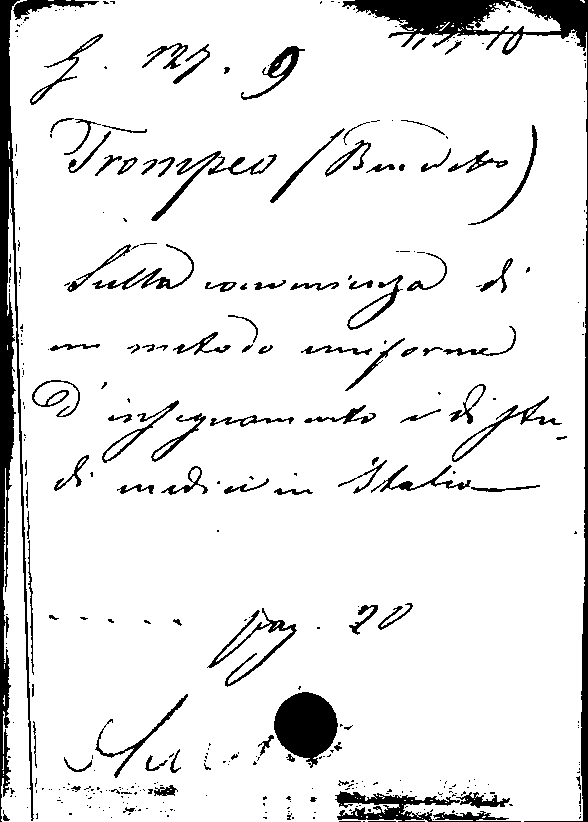 G. 127. 9
Trompeo (Benedetto)
Sulla convenienza di
un metodo uniforme
d'insegnamento e di stu-
di medici in Italia
..... pag. 20